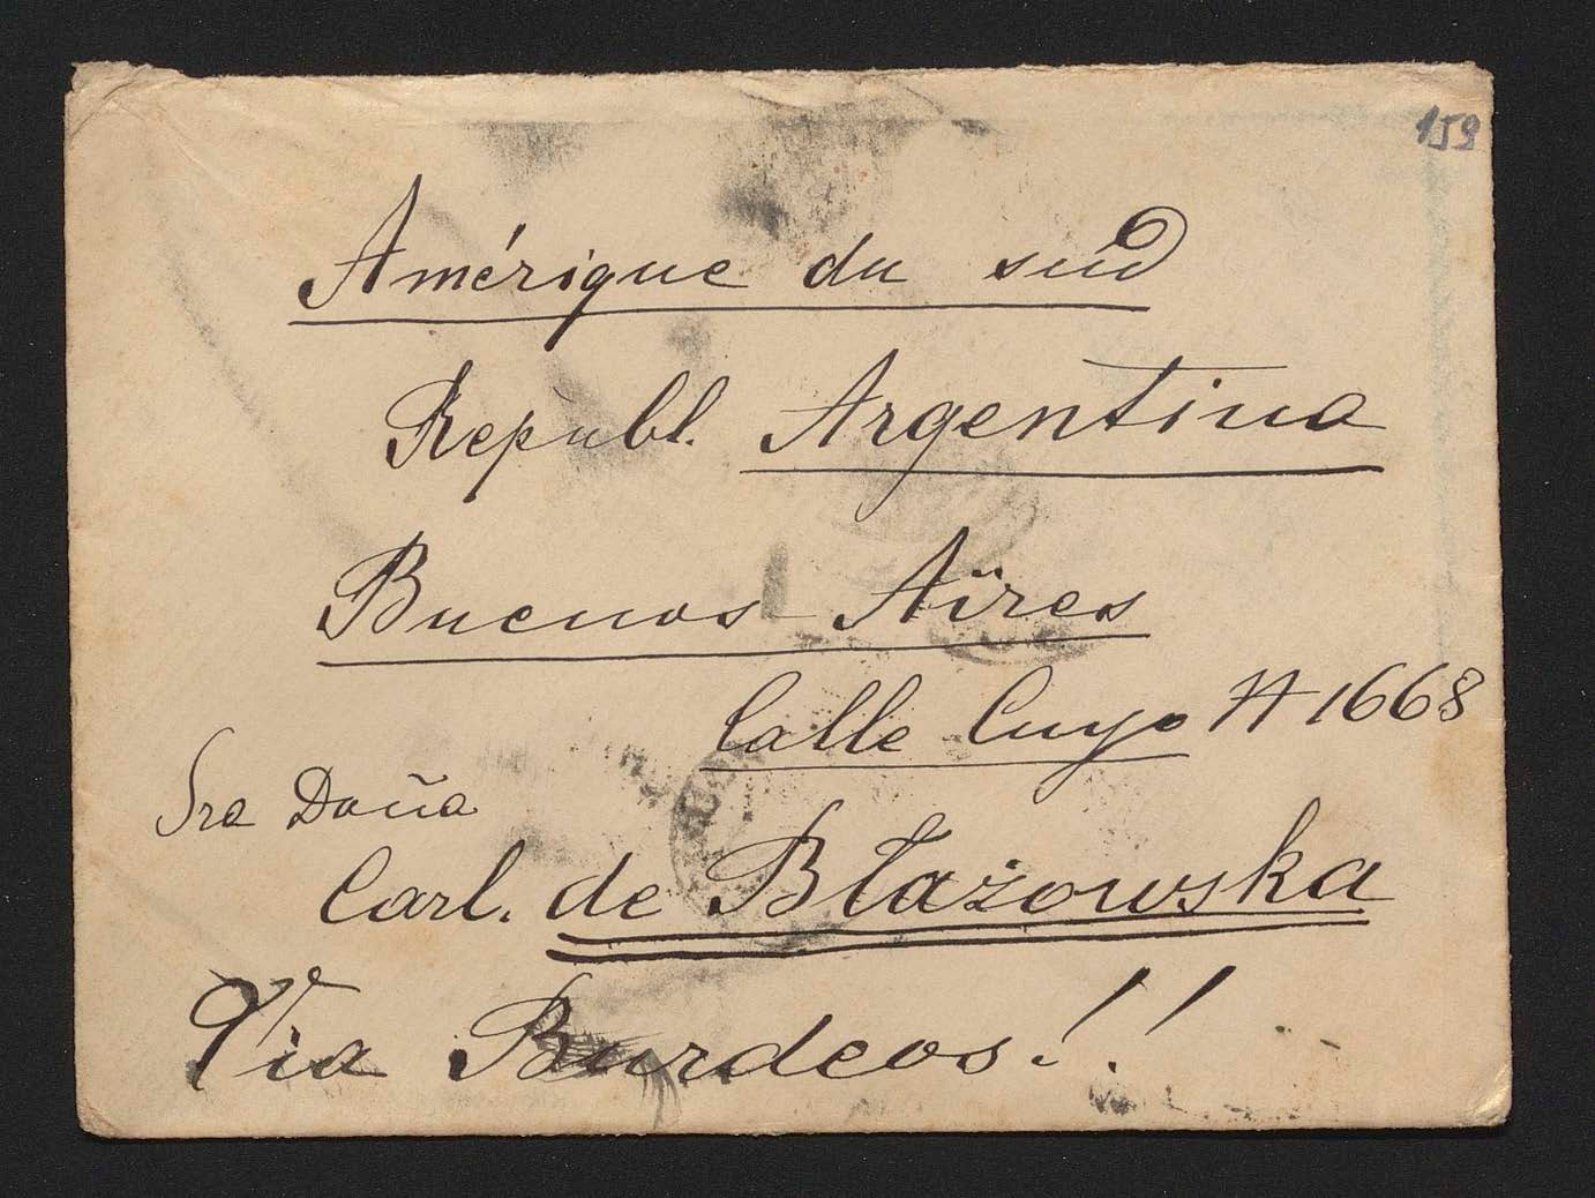 159
Amérique du sud
Republ. Argentina
Buenos Aïres
Calle Cuyo N 1668
Sra Doña
Carl. de Błażowska
Via Burdeos!!